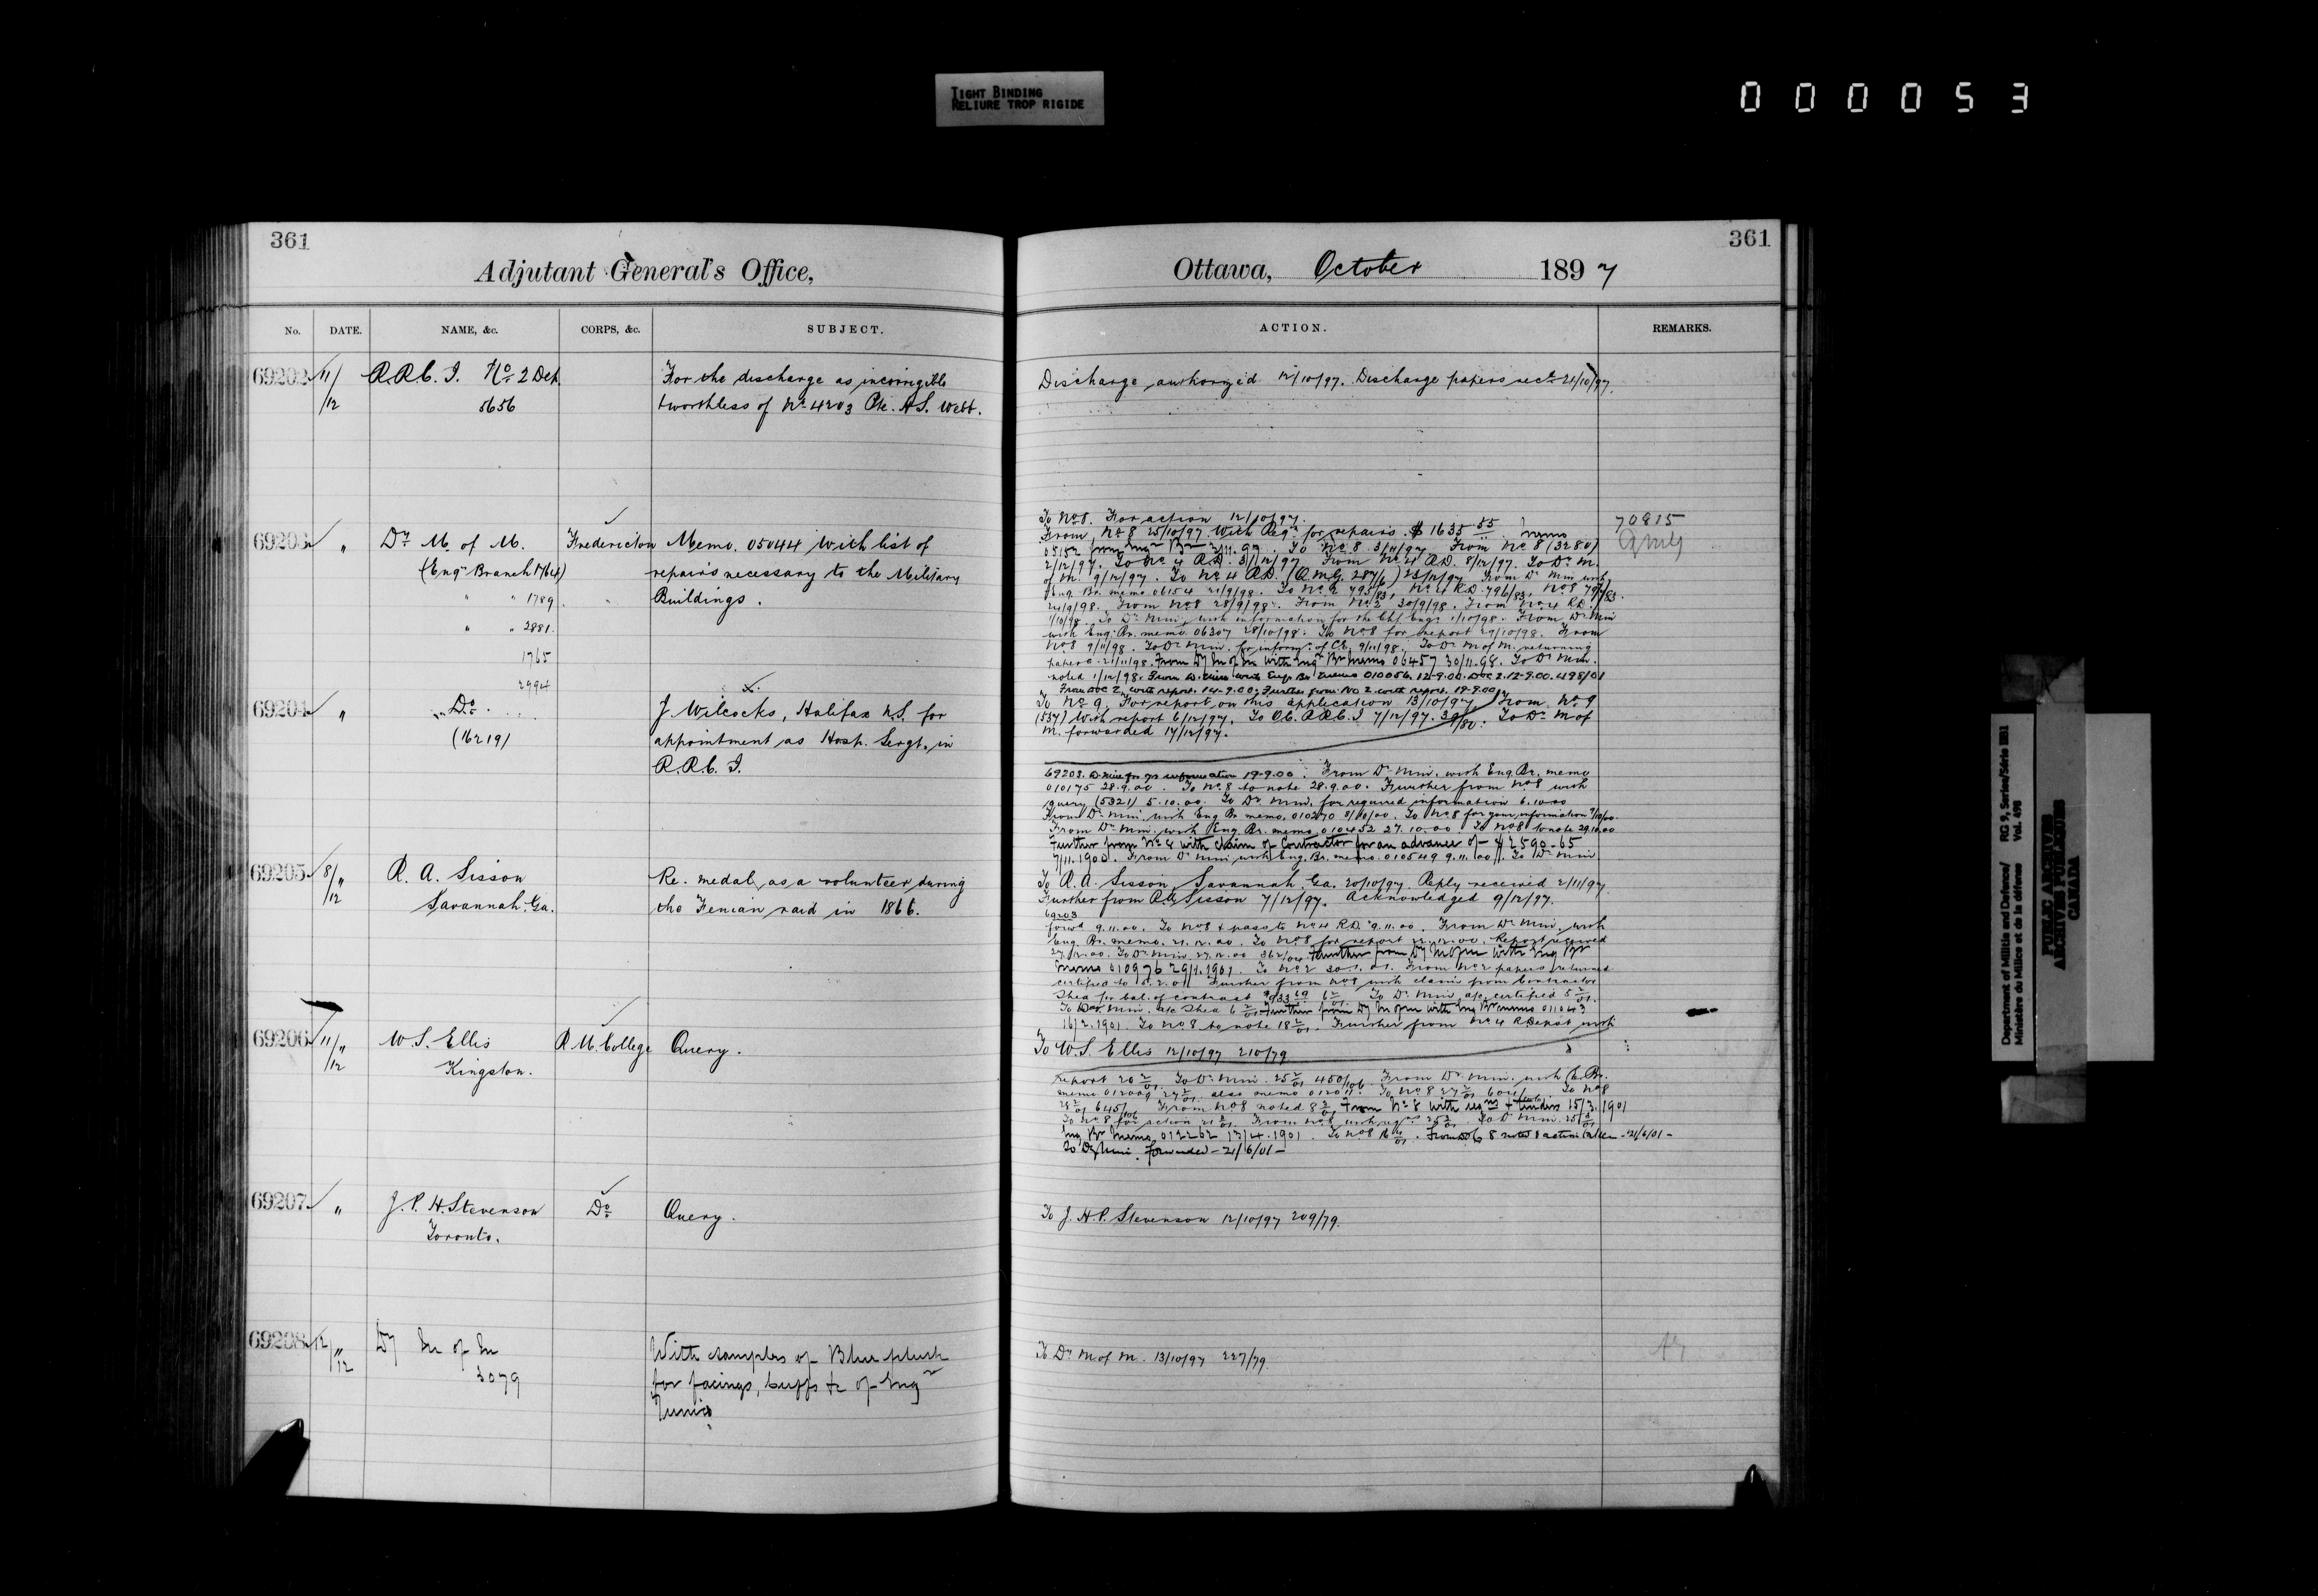 TIGHT BINDING
RELIURE TROP RIGIDE
000053
361
Adjutant General's Office,
No. DATE. NAME, &c. CORPS, &c. SUBJECT.
69202 11/12 R.R.C.I. No 2 Dep. For the discharge as incorrigible
5656 + worthless of No 4203 Pte. H.S. Webb.
69203 " Dy M. of M. Fredericton Memo. 05044 with list of
(Engr Branch 1764) repairs necessary to the Military
" " 1789. Buildings.
" " 2881.
1765
2994
69204 " Do. J. Wilcocks, Halifax N.S. for
(16219) appointment as Hosp. Sergt. in
R.R.C.I.
69205 8/12 " R. A. Sisson Re. medal as a volunteer during
Savannah. Ga. the Fenian raid in 1866.
69206 11/12 " W.S. Ellis R.M. College Query.
Kingston.
69207 " J.P.H. Stevenson Do Query.
Toronto.
69208 12/12 " Dy M of M With samples of Blue plush
3079 for facings, cuffs &c of Engr
Tunics
361
Ottawa, October 1897
ACTION. REMARKS.
Discharge authorized 12/10/97. Discharge papers recd 21/10/97
To No 8. For action 12/10/97. 70815
From No 8 25/10/97 With Reqn for repairs $1635.55 memo
05152 from Engr Br 2/11.97. To No 8 3/11/97 From No 8 (3280)
2/12/97. To No 4 R.D. 3/12/97 From No 4 R.D. 8/12/97. To Dy M.
of M. 9/12/97. To No 4 R.D. (Q.M.G. 287/6) 23/12/97 From Dy Min with
Eng. Br. memo 06154 21/9/98. To No 2 795/83, No 4 R.D. 796/83, No 8 797/83.
24/9/98. From No 8 28/9/98. From No 2 30/9/98. From No 4 R.D.
1/10/98. To Dy Min, with information for the Chf Engr 1/10/98. From Dy Min
with Eng. Br. memo 06307 28/10/98. To No 8 for report 29/10/98. From
No 8 9/11/98. To Dy Min. for inform. of C.E. 9/11/98. To Dy M of M. returning
papers 21/11/98. From Dy M of M with Engr Br Memo 06457 30/11.98. To Dy Min.
noted 1/12/98. From D. Min with Eng. Br. memo 010056. 12-9.00. DOC 2. 12-9.00. 498/01
From DOC 2 with report 14-9.00. Further from No 2 with report 19-9.00
To No 9. For report on this application 13/10/97. From No 9
(537) With report 6/12/97. To O.C. R.R.C.I 7/12/97. 39/80. To Dy M of
M. forwarded 17/12/97.
69203. D. Min for yr information 19-9.00. From Dy Min. with Eng. Br. memo
010175 28.9.00. To No 8 to note 28.9.00. Further from No 8 with
query (5321) 5.10.00. To Dy Min. for required information 6.10.00
From Dy Min. with Eng Br memo. 010270 8/10/00. To No 8 for your information 9/10/00.
From Dy Min. with Eng. Br. memo 010452 27.10.00. To No 8 to note 29.10.00
Further from No 4 with claim of Contractor for an advance of $2590-65
7/11.1900. From Dy Min with Eng. Br. memo. 010549 9.11.00. To Dy Min
To R. A. Sisson, Savannah, Ga. 20/10/97. Reply received 2/11/97
Further from R.A. Sisson 7/12/97. Acknowledged 9/12/97.
69203
forwd 9.11.00. To No 8 + pass to No 4 R.D. 9.11.00. From Dy Min. with
Eng. Br. memo. 21.12.00. To No 8 for report 22.12.00. Report received
27.12.00. To Dy Min 27.12.00 Further from Dy M of M with Eng Br
Memo 010976 29/1.1901. To No 2 From No 2 papers returned
certified to Further from No 8 with claim from Contractor
Shea for bal. of contract To Dy Min. a/c certified
Further from Dy M of M with Eng Br memo 011043
16/2.1901. To No 8 to note 18 2/01. Further from No 4 R Depot with
To W.S. Ellis 12/10/97 210/79
report 20 2/01. To Dy Min. 25 2/01 450/106. From Dy Min. with E. Br.
From No 8 noted From No 8 with 15/3.1901
To No 8 for action
Eng Br Memo 012262 17/4.1901. To No 8 From 8 noted & action taken - 21/6/01 -
To Dy Min. Forwarded - 21/6/01 -
To J. H.P. Stevenson 12/10/97 209/79.
To Dy M of M. 13/10/97 227/79.
Department of Militia and Defence/ RG 9, Series/Série IIB1
Ministère du Milice et de la défense Vol. 498
PUBLIC ARCHIVES
ARCHIVES PUBLIQUES
CANADA